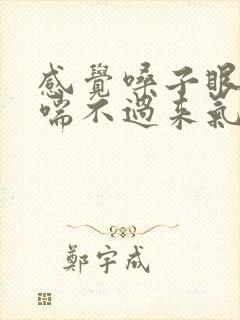 感覺嗓子眼
喘不過來氣
鄭宇成